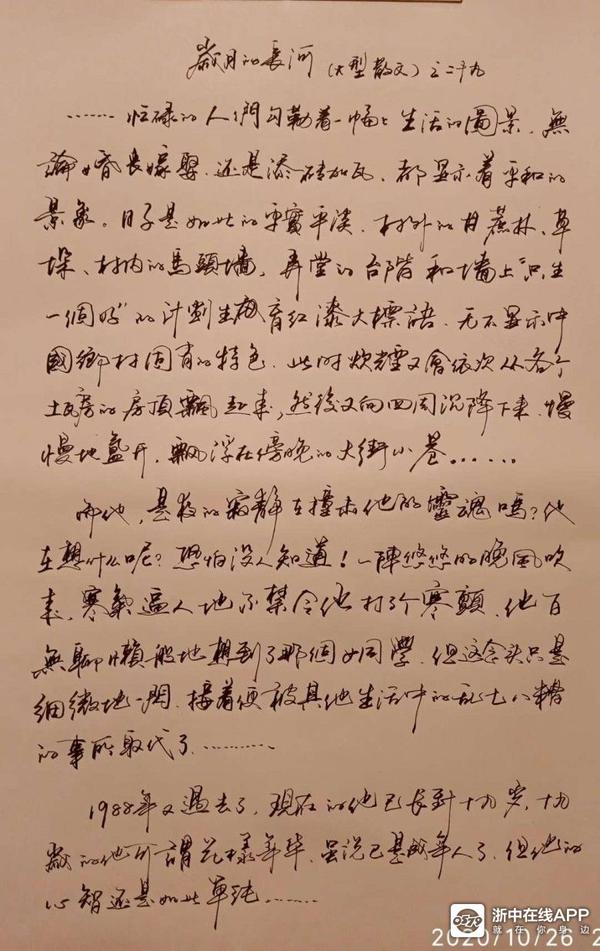 歲月的長河 (大型散文) 之二十九
……忙碌的人們勾勒着一幅幅生活的圖景，無
論婚喪嫁娶，还是添磚加瓦，都显示着平和的
景象。日子是如此的平實平淡，村外的甘蔗林、草
垛、村内的馬頭墻，弄堂的台階和墻上“只生
一個好”的计劃生育红漆大標語，无不显示中
國鄉村固有的特色。此时炊煙又會依次从各个
土瓦房的房頂飄起来，然後又向四周沉降下来，慢
慢地盪开，飄浮在傍晚的大街小巷……
而他，是夜的寂静在撞击他的靈魂嗎？他
在想什么呢？恐怕没人知道！一陣悠悠的晚风吹
来，寒氣逼人地不禁令他打了个寒顫，他百
無聊懶般地想到了那個女同學，但这念头只是
细微地一閃，接着便被其他生活中的乱七八糟
的事所取代了………
1988年又過去了，現在的他已长到十九岁，十九
歲的他所謂花樣年华，虽说已是成年人了，但他的
心智还是如此单纯………
浙中在线APP
就在你身边
2020/10/26 2